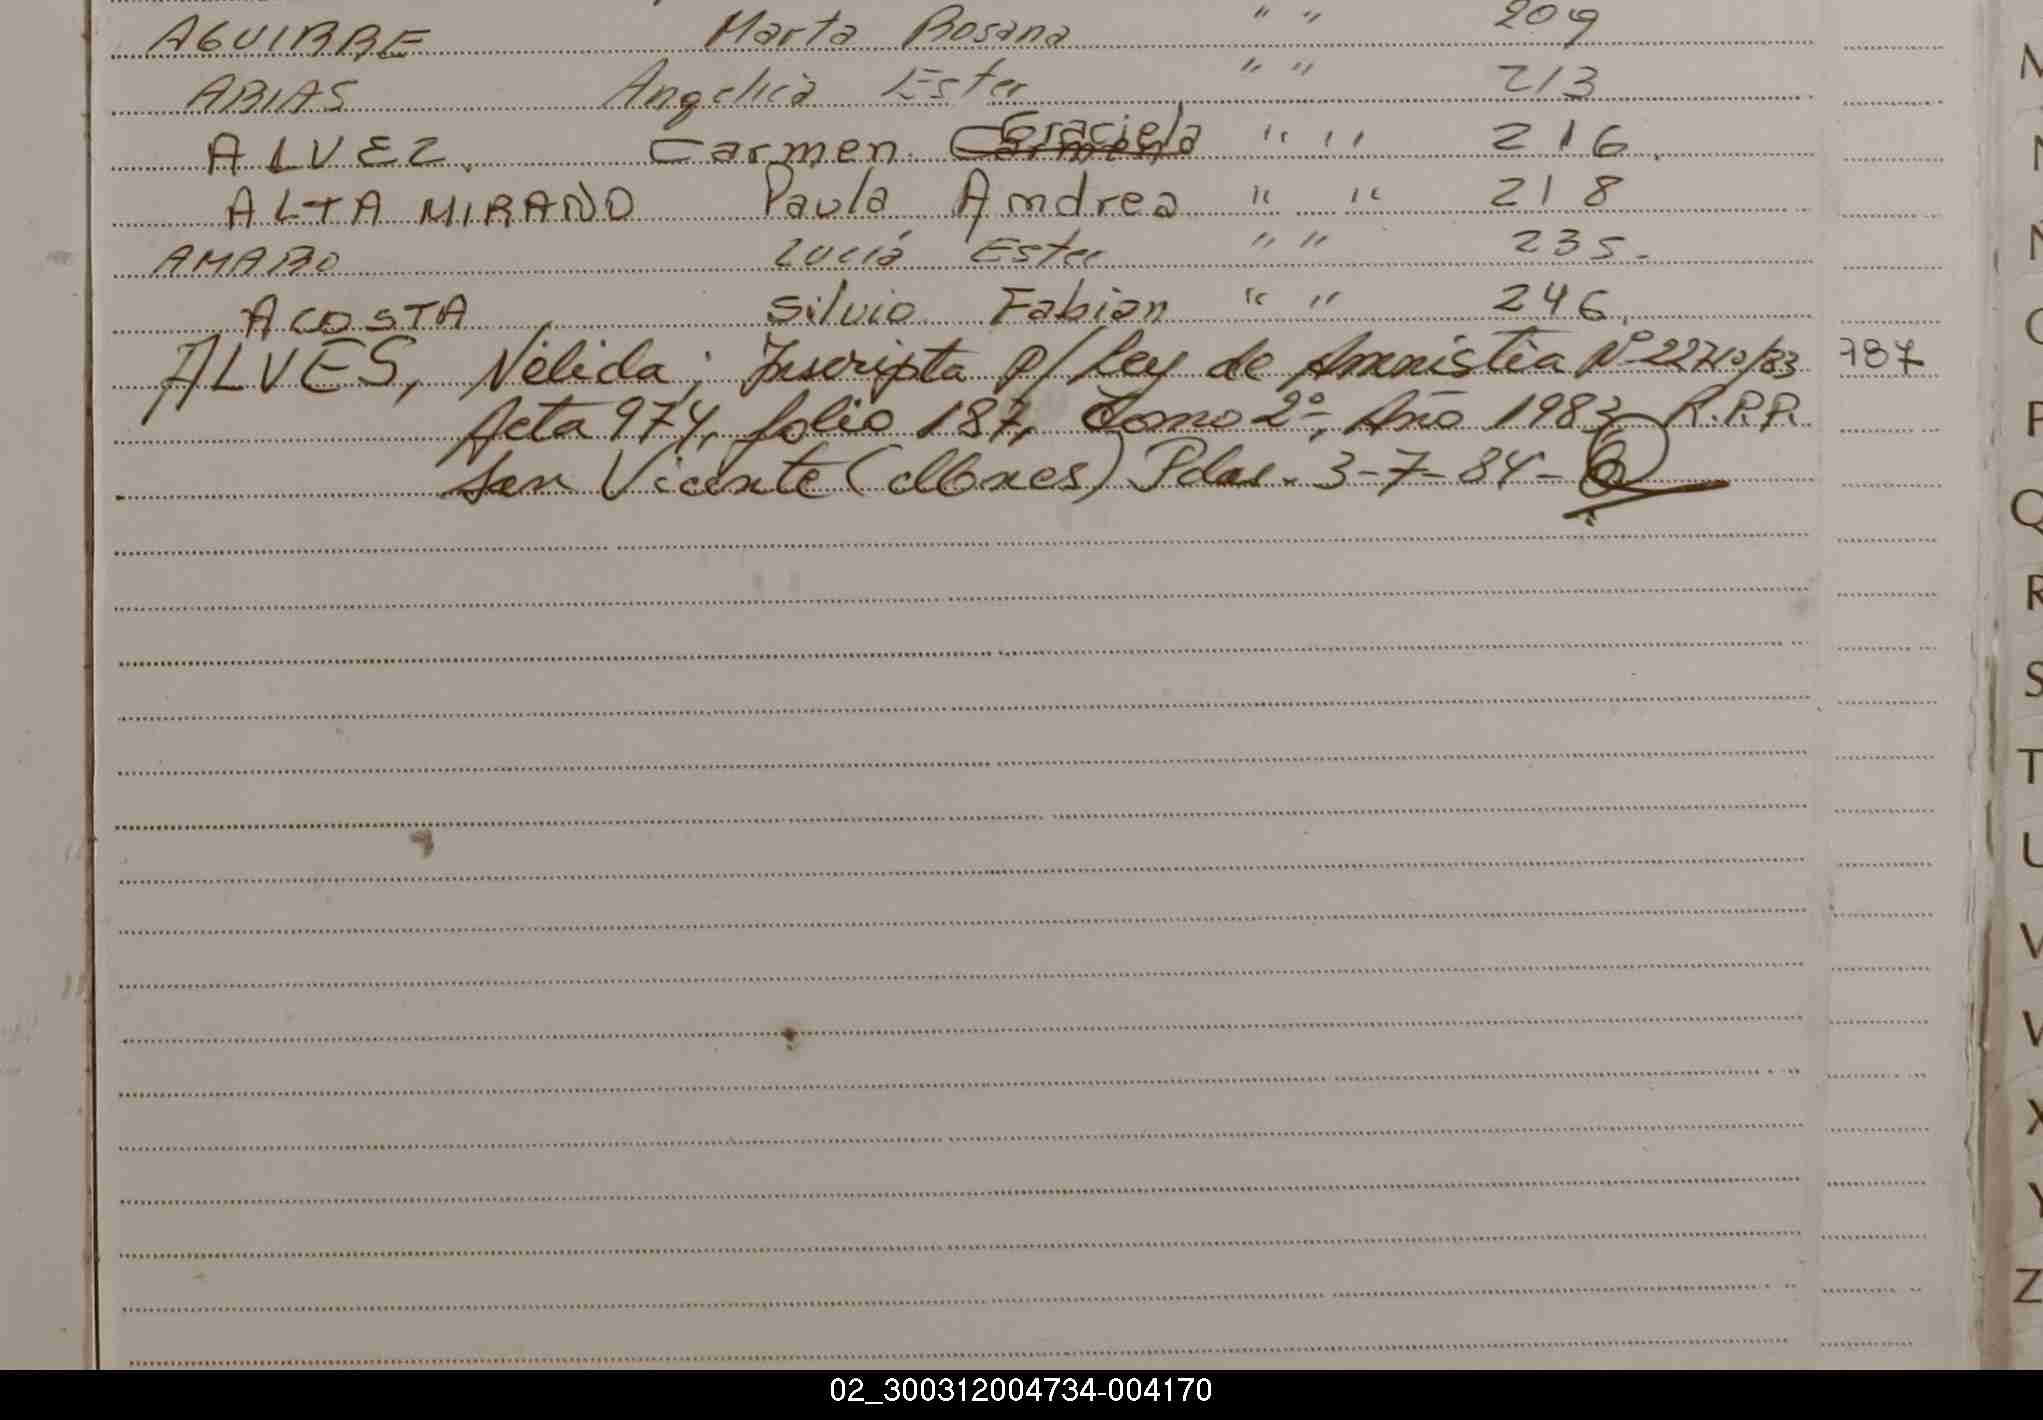 AGUIRRE Marta Rosana " " 209
ARIAS Angelica Ester " " 213
ALVEZ. Carmen Carmen Graciela " " 216.
ALTA MIRANO Paula Andrea " " 218
AMARO Lucía Ester " " 235.
ACOSTA Silvio Fabian " " 246.
ALVES, Nélida; Inscripta p/ Ley de Amnistia Nº 22710/83 187
Acta 974, folio 187, Tomo 2º, Año 1983 R.P.P.
San Vicente (Mnes) Pdas. 3-7-84-
N
N
O
P
Q
R
S
T
U
V
X
Y
Z
02_300312004734-004170